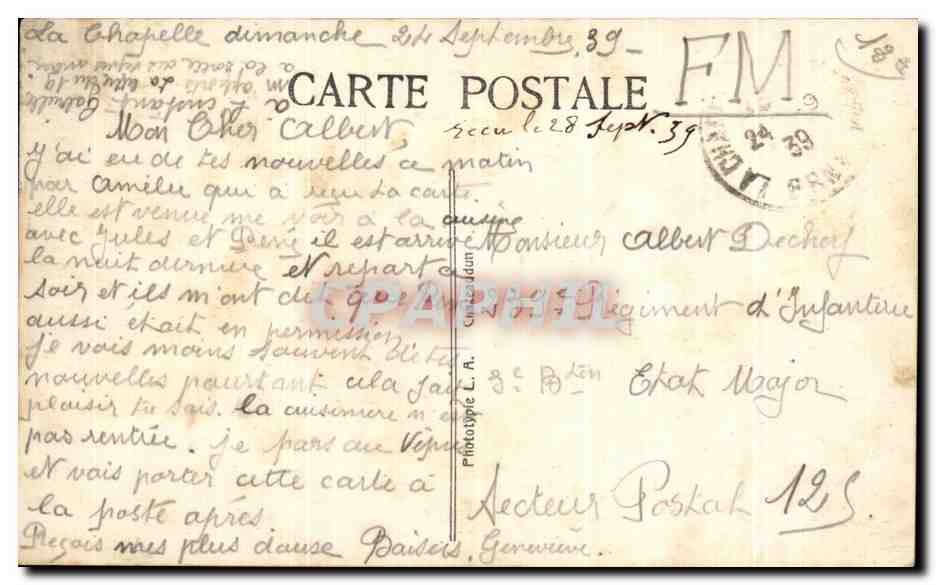 La Chapelle dimanche 24 Septembre 39
a l'instant
CARTE POSTALE
FM
Mon Cher Albert
recu le 28 Sept. 39
24
39
LA CHA
j'ai eu de tes nouvelles ce matin
par Amélie qui a reçu ta carte.
elle est venue me voir à la cuisine
avec Jules et René il est arrivé
la nuit dernière et repart ce
soir et ils m'ont dit que
aussi était en permission
je vois moins souvent de tes
nouvelles pourtant cela fait
plaisir tu sais. la cuisinière n'est
pas rentrée. je pars au Vêpres
et vais porter cette carte à
la poste après
Reçois mes plus doux Baisers. Geneviève.
Phototypie L. A. Chateaudun
Monsieur Albert
Régiment d'Infanterie
3e Bton Etat Major
Secteur Postal 125
CPAPHIL